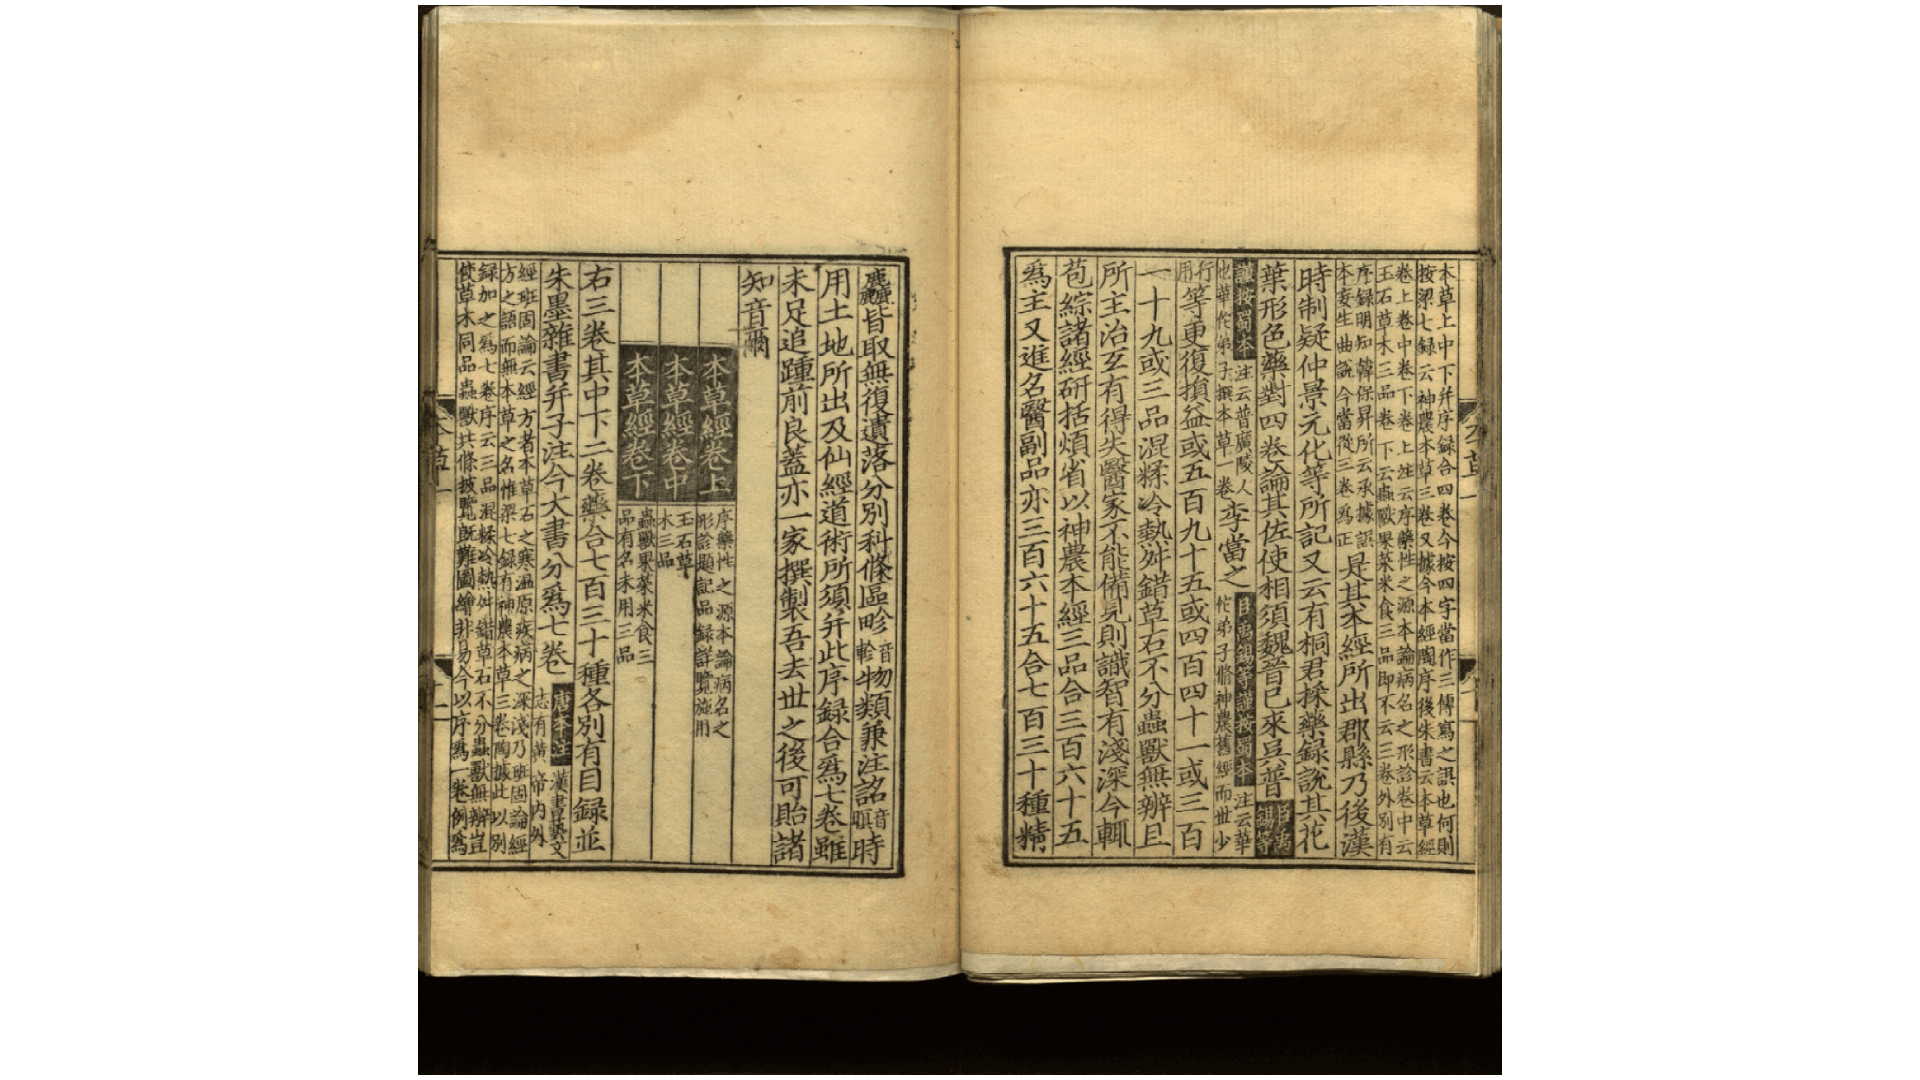 本草上中下并序録合四卷今按四字當作三傳寫之誤也何則
按梁七録云神農本草三卷又據今本經陶序後朱書云本草經
卷上卷中卷下卷上注云序藥性之源本論病名之形診卷中云
玉石草木三品卷下云蟲獸果菜米食三品即不云三卷外別有
序録明知韓保昇所云承據誤
本妄生曲説今當從三卷爲正
是其本經所出郡縣乃後漢
時制疑仲景元化等所記又云有桐君採藥録説其花
葉形色藥對四卷論其佐使相須魏晉已來吳普臣禹錫等
謹按蜀本注云普廣陵人
也華佗弟子撰本草一卷
李當之
臣禹錫等謹按蜀本注云華
佗弟子脩神農舊經而世少
行用
等更復損益或五百九十五或四百四十一或三百
一十九或三品混糅冷熱舛錯草石不分蟲獸無辨且
所主治互有得失醫家不能備見則識智有淺深今輒
苞綜諸經研括煩省以神農本經三品合三百六十五
爲主又進名醫副品亦三百六十五合七百三十種精
麤皆取無復遺落分別科條區畛音軫物類兼注詺音暝時
用土地所出及仙經道術所須并此序録合爲七卷雖
未足追踵前良蓋亦一家撰製吾去世之後可貽諸
知音爾
本草經卷上
序藥性之源本論病名之
形診題記品録詳覽施用
本草經卷中
玉石草
木三品
本草經卷下
蟲獸果菜米食三
品有名未用三品
右三卷其中下二卷藥合七百三十種各別有目録並
朱墨雜書并子注今大書分爲七卷
唐本注漢書藝文
志有黄帝内外
經班固論云經方者本草石之寒温原疾病之深淺乃班固論經
方之語而無本草之名惟梁七録有神農本草三卷陶據此以別
録加之爲七卷序云三品混糅冷熱舛錯草石不分蟲獸無辨豈
使草木同品蟲獸共條披覽既難圖繪非易今以序爲一卷例爲